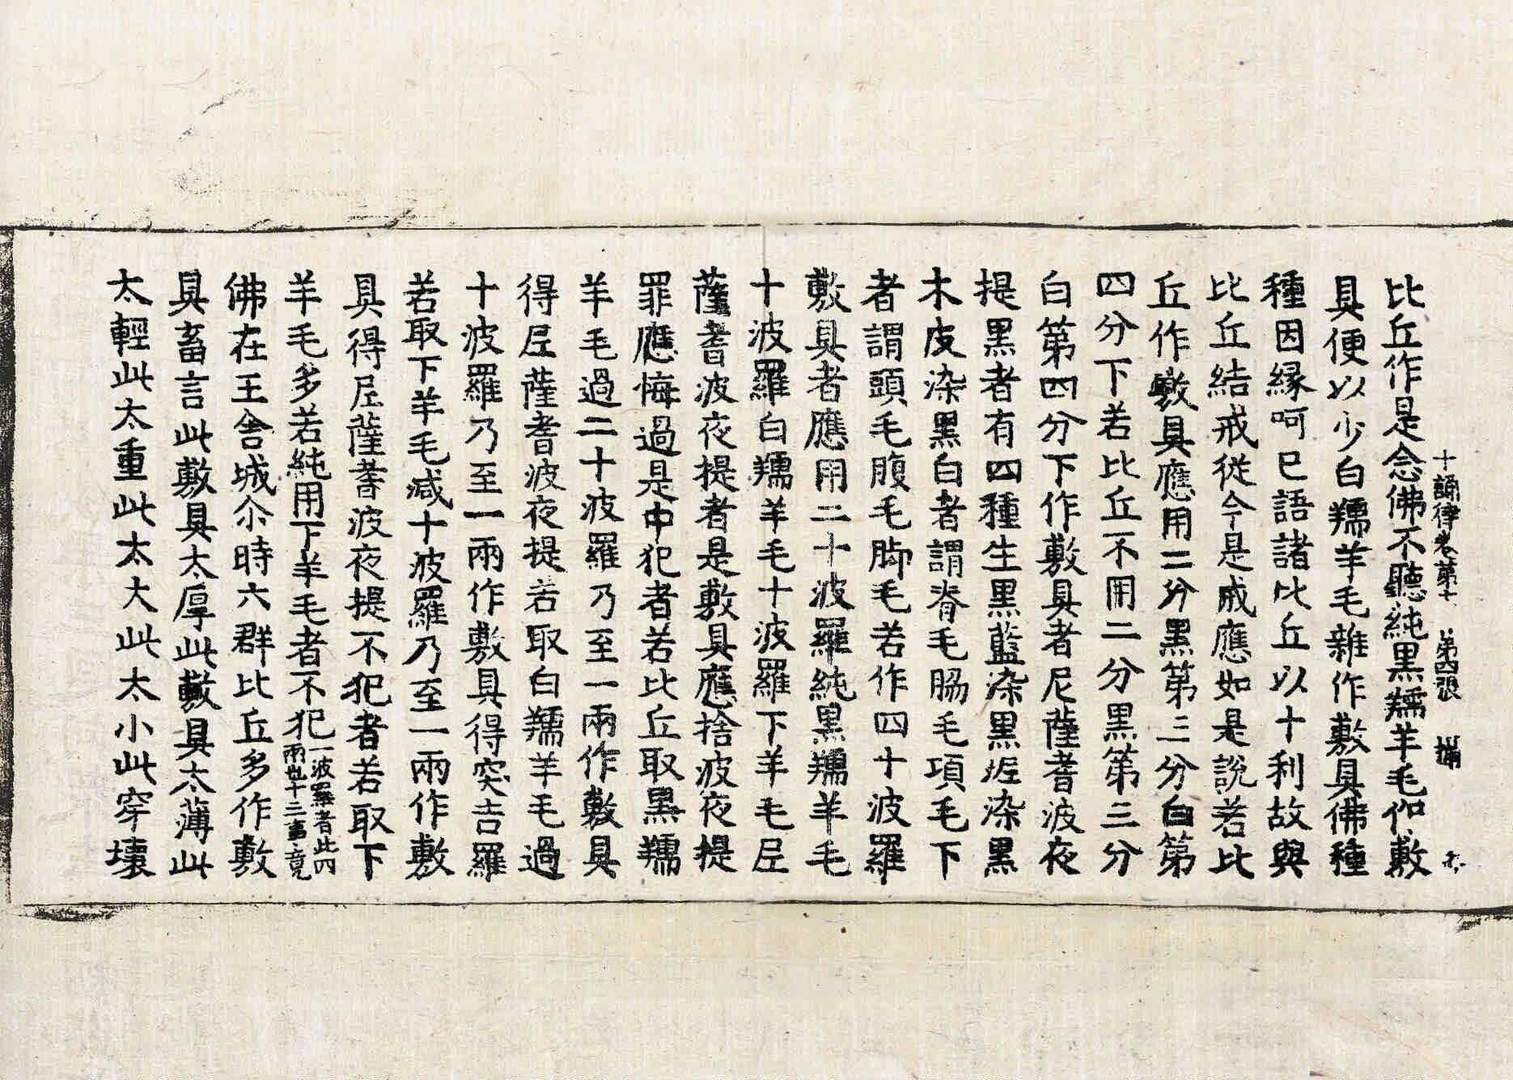 十誦律卷第七 第四張
比丘作是念佛不聽純黑羺羊毛作敷
具便以少白羺羊毛雜作敷具佛種
種因緣呵已語諸比丘以十利故與
比丘結戒從今是戒應如是說若比
丘作敷具應用二分黑第三分白第
四分下若比丘不用二分黑第三分
白第四分下作敷具者尼薩耆波夜
提黑者有四種生黑藍染黑埿染黑
木皮染黑白者謂脊毛脇毛項毛下
者謂頭毛腹毛脚毛若作四十波羅
敷具者應用二十波羅純黑羺羊毛
十波羅白羺羊毛十波羅下羊毛尼
薩耆波夜提者是敷具應捨波夜提
罪應悔過是中犯者若比丘取黑羺
羊毛過二十波羅乃至一兩作敷具
得尼薩耆波夜提若取白羺羊毛過
十波羅乃至一兩作敷具得突吉羅
若取下羊毛減十波羅乃至一兩作敷
具得尼薩耆波夜提不犯者若取下
羊毛多若純用下羊毛者不犯一波羅者此四兩也十三事竟
佛在王舍城尒時六群比丘多作敷
具畜言此敷具太厚此敷具太薄此
太輕此太重此太大此太小此穿壞